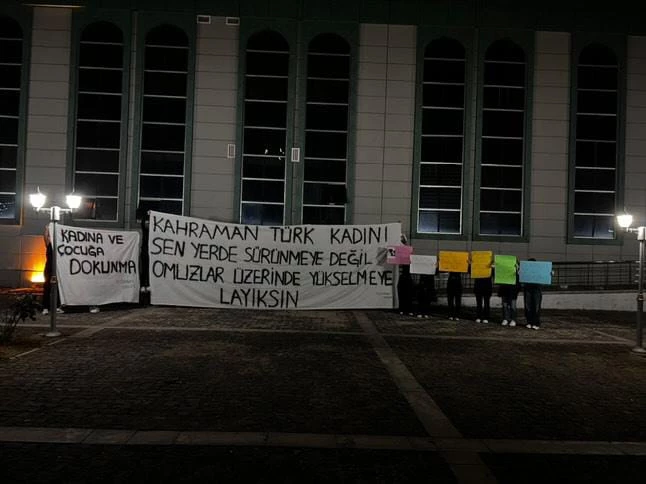 KADINA VE
ÇOCUĞA
DOKUNMA
KAHRAMAN TÜRK KADINI
SEN YERDE SÜRÜNMEYE DEĞİL
OMUZLAR ÜZERİNDE YÜKSELMEYE
LAYIKSIN